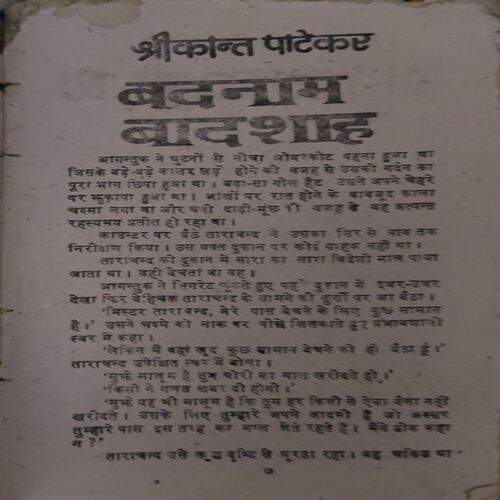 श्रीकान्त पाटेकर
बदनाम
बादशाह
आगन्तुक ने घुटनों से नीचा ओवरकोट पहना हुआ था
जिसके बड़े-बड़े कालर खड़े होने की वजह से उसकी गर्दन का
पूरा भाग छिपा हुआ था। बड़ा-सा गोल हैट उसने अपने चेहरे
पर झुकाया हुआ था। आंखों पर रात होने के बावजूद काला
चश्मा लगा था और घनी दाढ़ी-मूंछ की वजह से वह अत्यन्त
रहस्यमय प्रतीत हो रहा था।
काउन्टर पर बैठे ताराचन्द ने उसका सिर से पांव तक
निरीक्षण किया। उस वक्त दुकान पर कोई ग्राहक नहीं था।
ताराचन्द की दुकान में सारा का सारा विदेशी माल पाया
जाता था। वही बेचता था वह।
आगन्तुक ने सिगरेट फूंकते हुए पहले दुकान में इधर-उधर
देखा फिर बेहिचक ताराचन्द के सामने की कुर्सी पर आ बैठा।
'मिस्टर ताराचन्द, मेरे पास बेचने के लिए कुछ सामान
है।' उसने चश्मे को नाक पर पीछे खिसकाते हुए प्रभावशाली
स्वर में कहा।
'लेकिन मैं यहां खुद कुछ सामान बेचने को ही बैठा हूं।'
ताराचन्द उपेक्षित स्वर में बोला।
'मुझे मालूम है तुम चोरी का माल खरीदते हो।'
'किसी ने गलत खबर दी होगी।'
'मुझे यह भी मालूम है कि तुम हर किसी से ऐसा सौदा नहीं
खरीदते। उसके लिए तुम्हारे अपने आदमी हैं जो अक्सर
तुम्हारे पास इस तरह का माल लेते रहते हैं। मैंने ठीक कहा
न?'
ताराचन्द उसे क्रुद्ध दृष्टि से घूरता रहा। वह चकित था
७